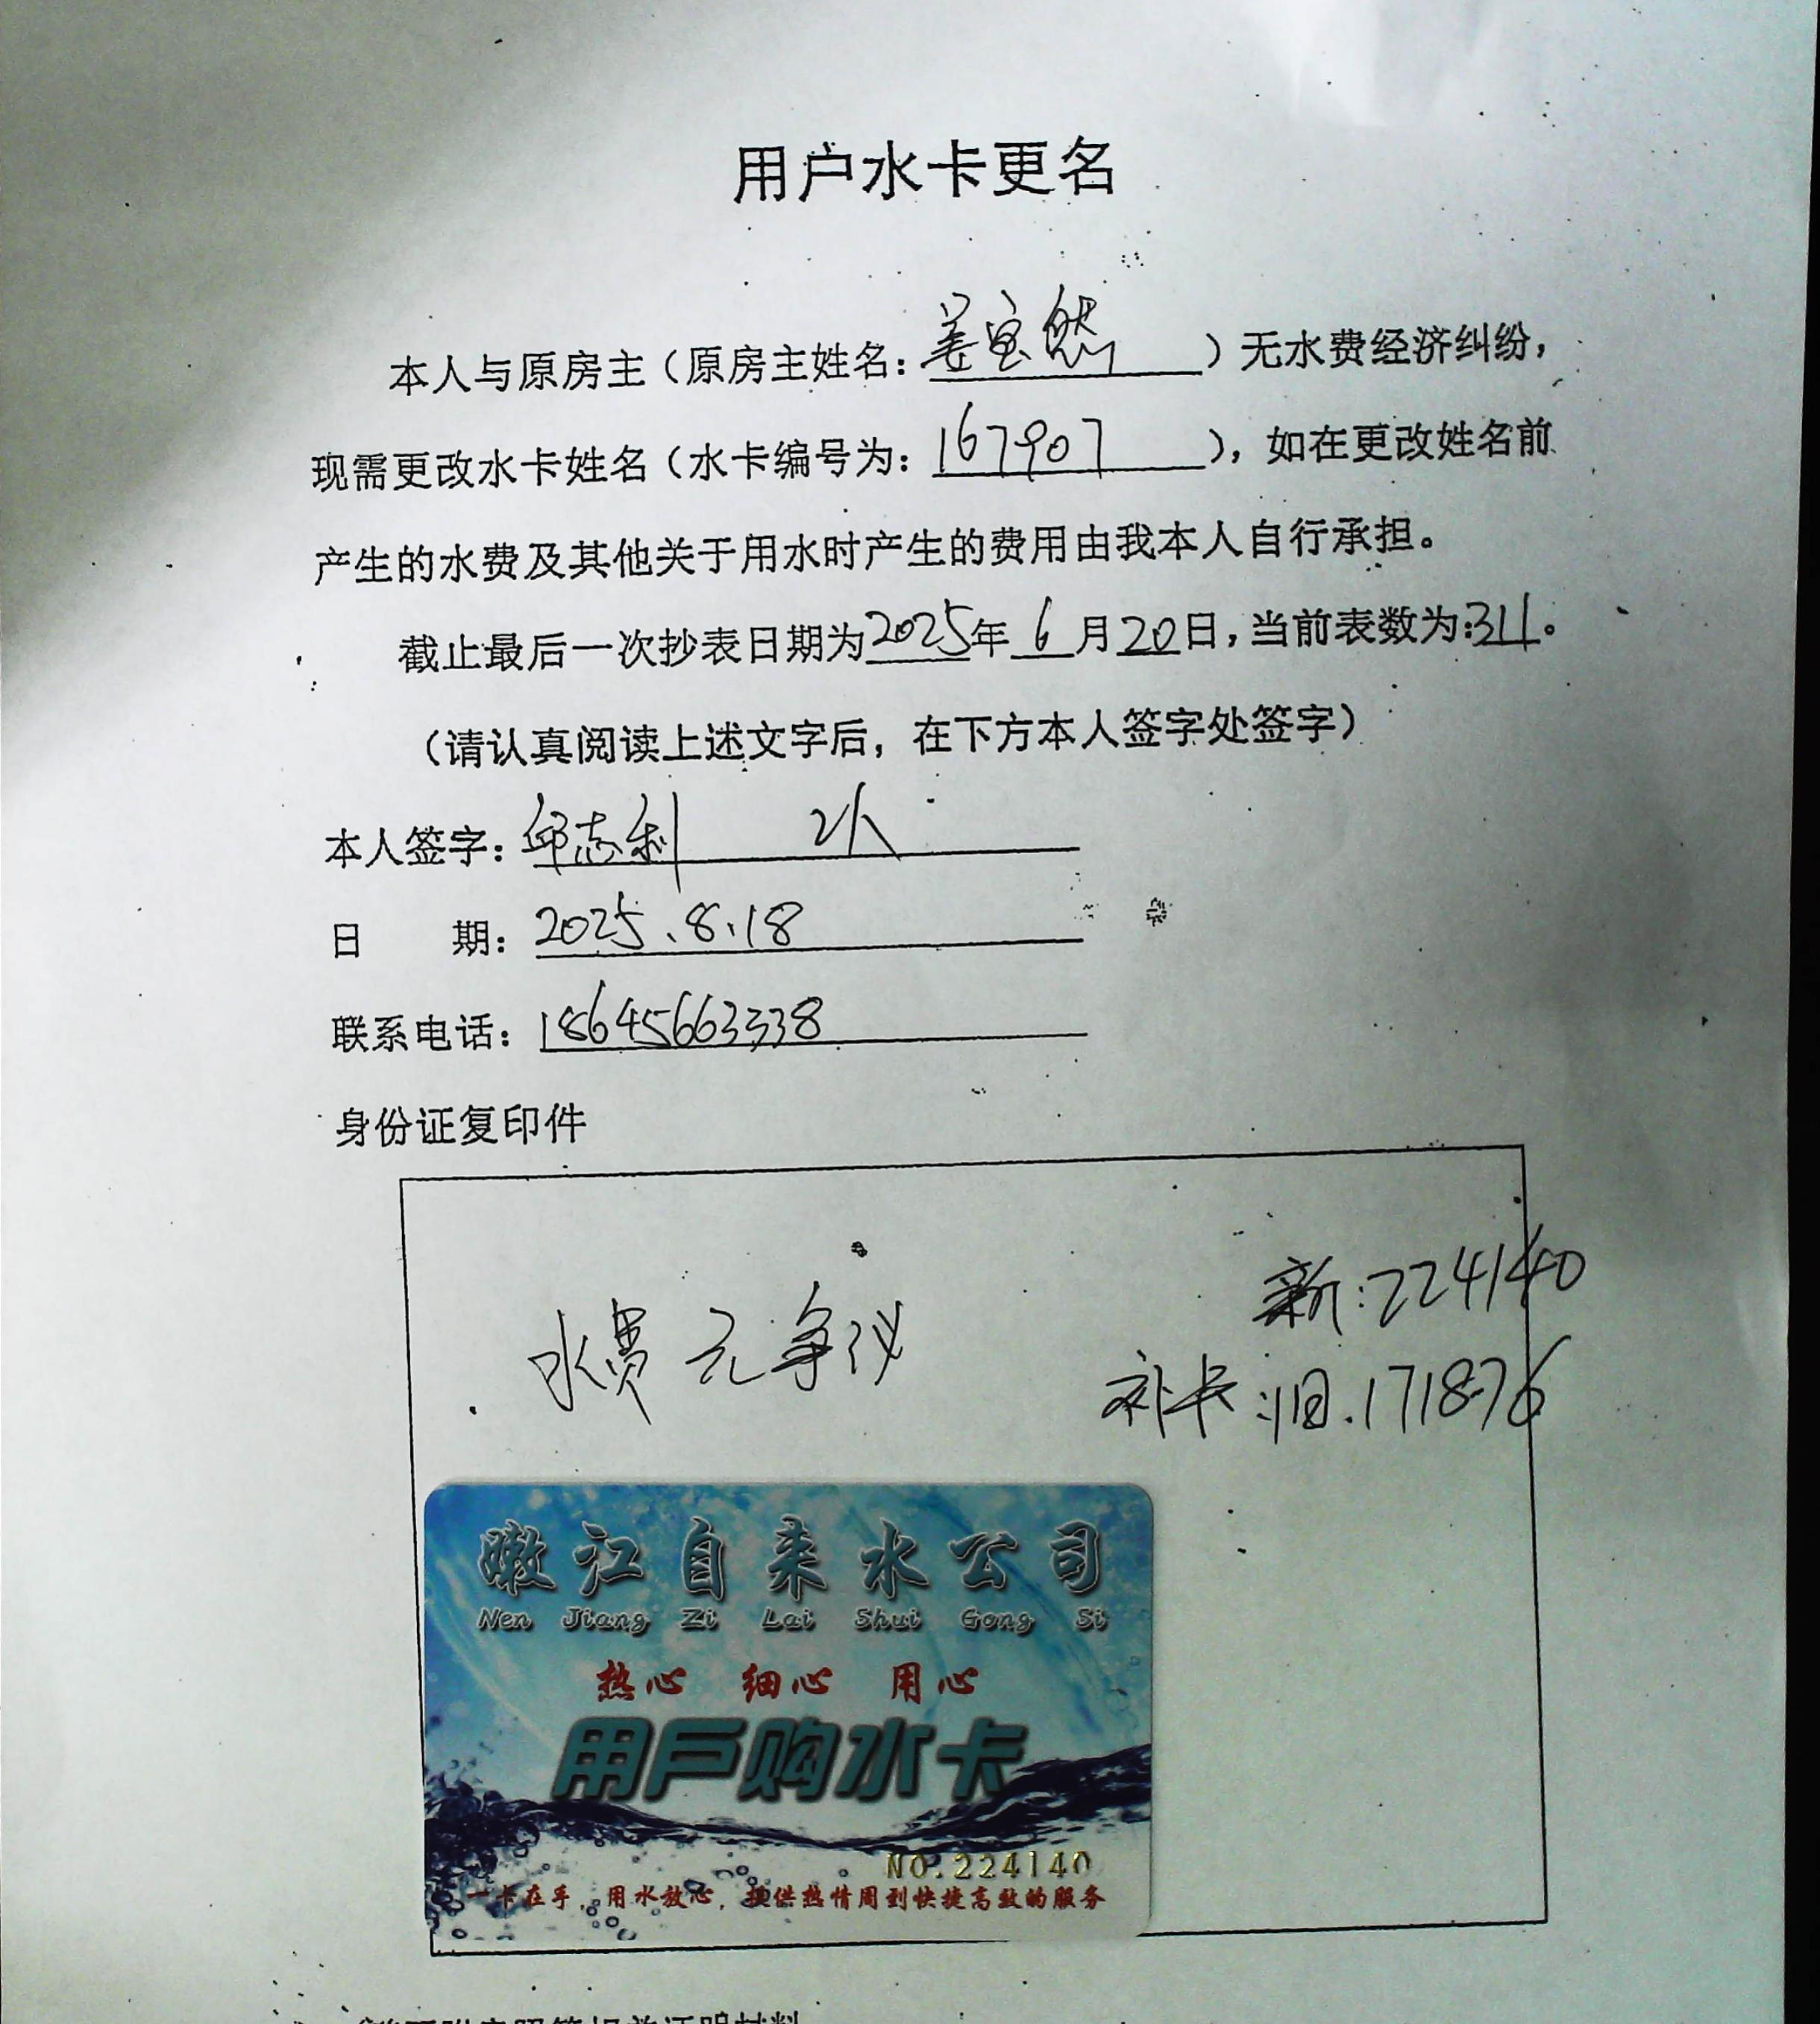 用户水卡更名
本人与原房主（原房主姓名：姜宝然）无水费经济纠纷，
现需更改水卡姓名（水卡编号为：167907），如在更改姓名前
产生的水费及其他关于用水时产生的费用由我本人自行承担。
截止最后一次抄表日期为2025年6月20日，当前表数为：311。
（请认真阅读上述文字后，在下方本人签字处签字）
本人签字：邱志利 2人
日 期：2025.8.18
联系电话：18645663338
身份证复印件
新：224140
水费无争议
补卡：旧.171876
嫩江自来水公司
Nen Jiang Zi Lai Shui Gong Si
热心 细心 用心
用戶购水卡
NO.224140
一卡在手，用水放心，提供热情周到快捷高效的服务